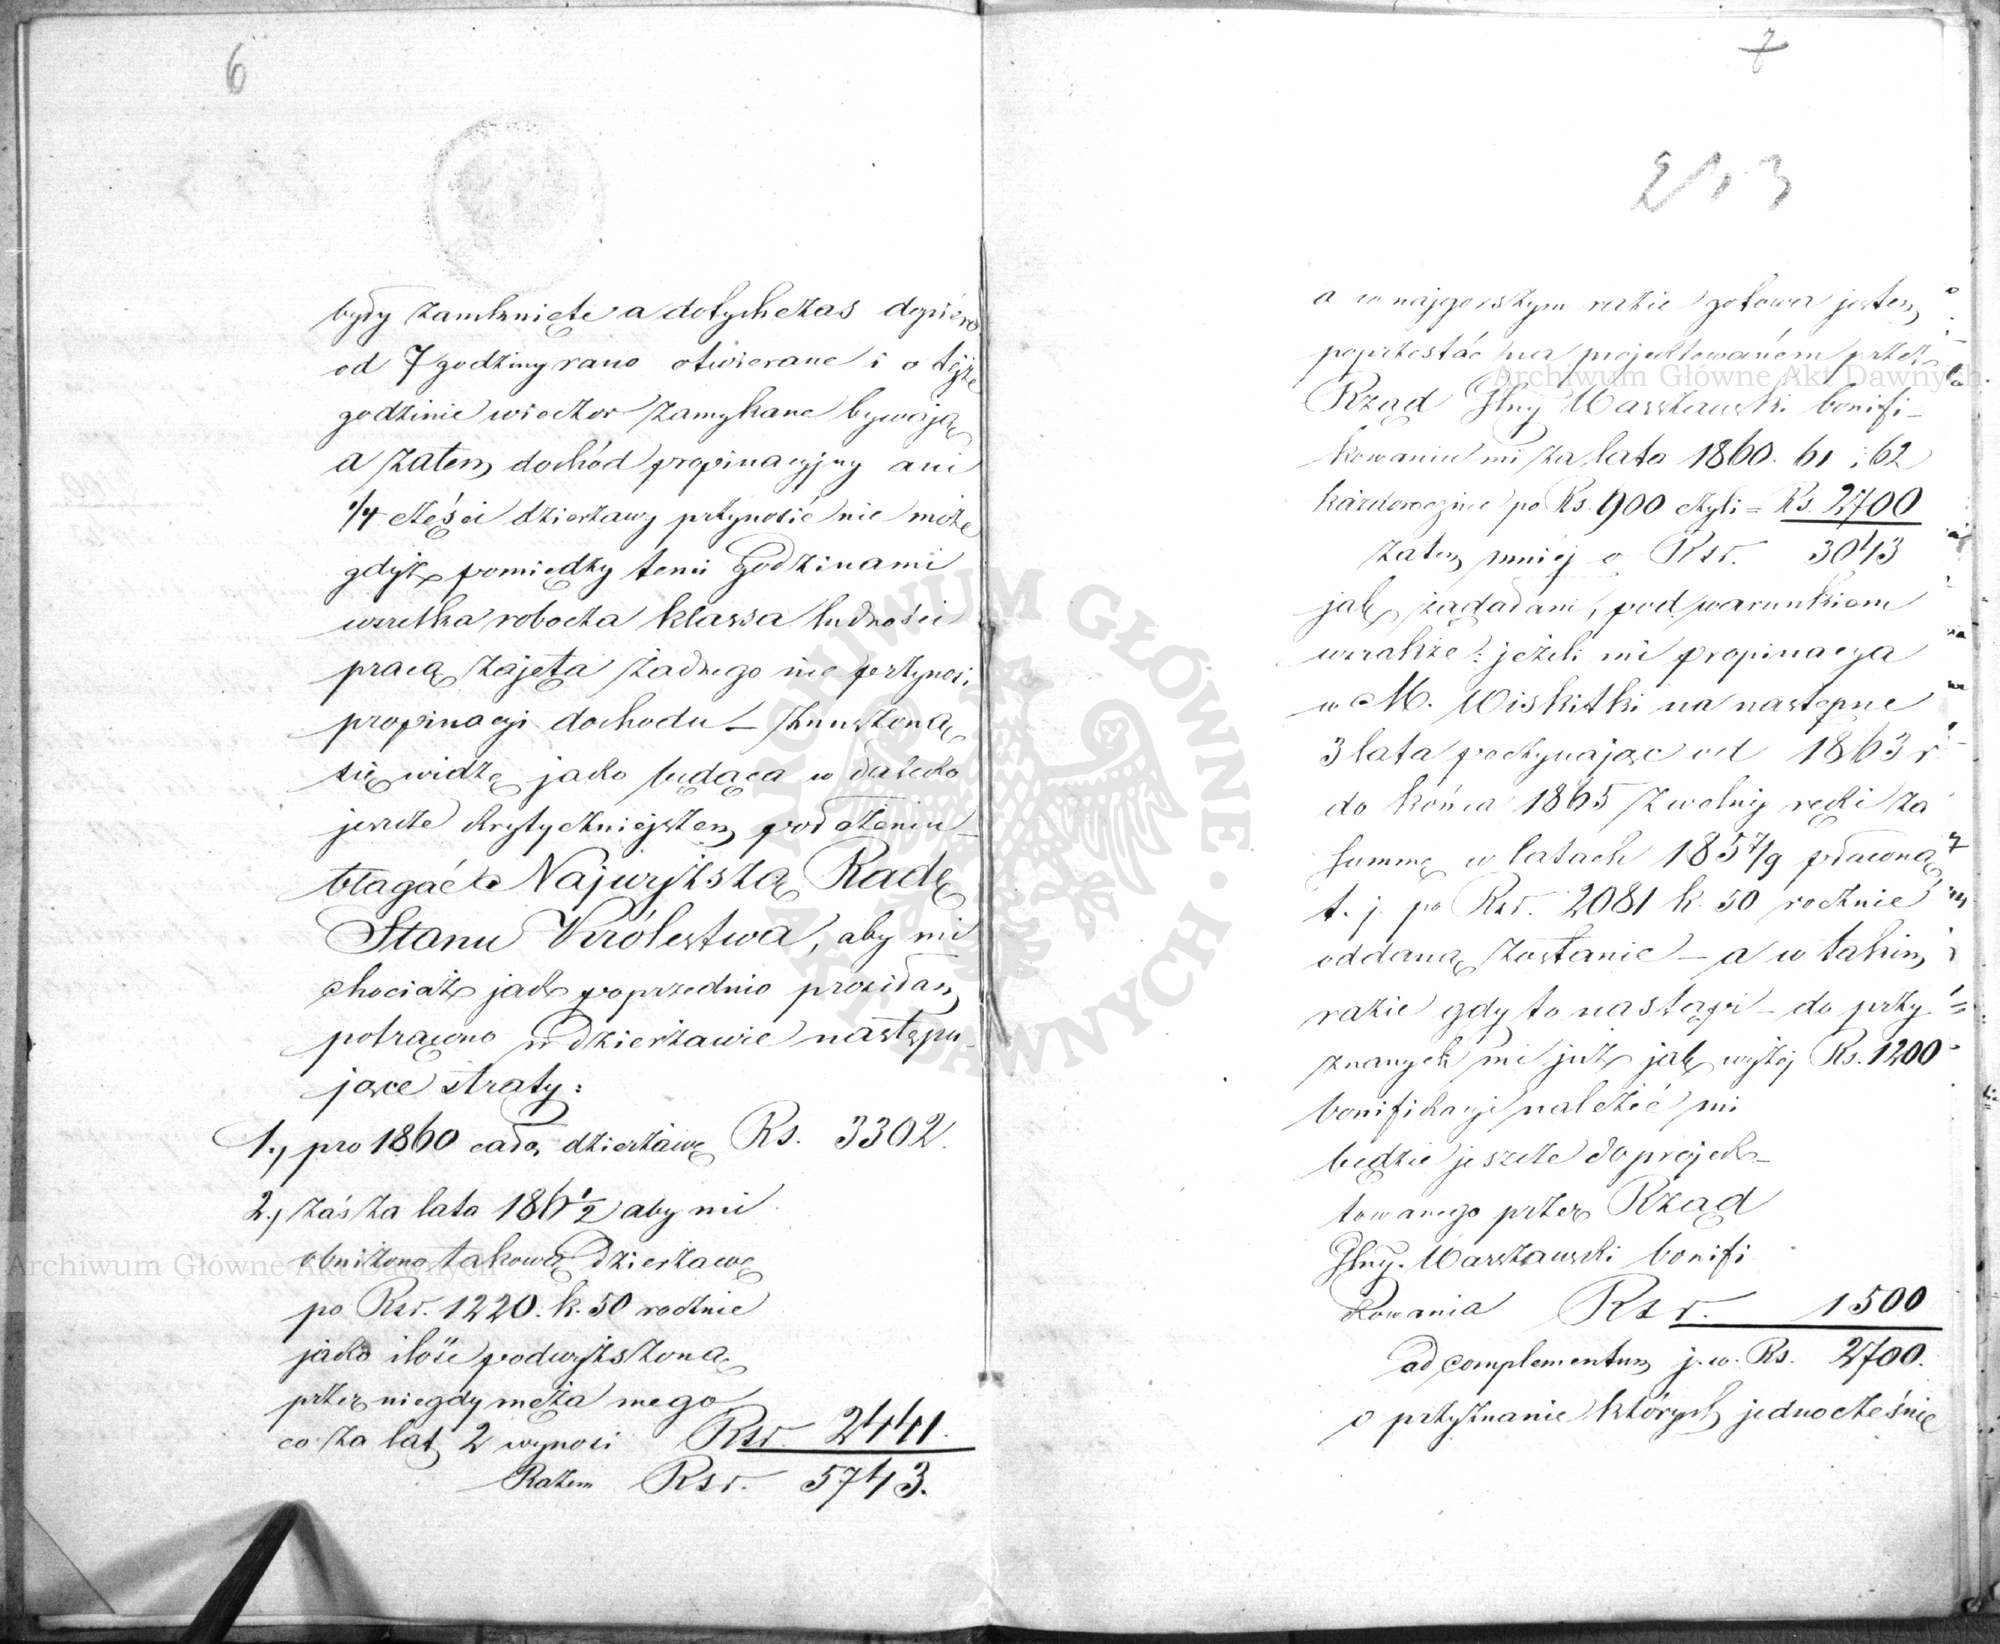 6
były zamknięte a dotychczas dopiéro
od 7 godziny rano otwierane i o téjże
godzinie wieczor zamykane bywają
a zatem dochód propinacyjny ani
1/4 części dzierżawy przynosić nie może
gdyż pomiędzy temi Godzinami
wszelka robocza klassa ludności
pracą zajęta żadnego nie przynosi
propinacyi dochodu – zmuszoną
się widzę jako będąca w daleko
jeszcze krytyczniejszem położeniu
błagać Najwyższą Radę
Stanu Królestwa, aby mi
chociaż jak poprzednio prosiłam
potrącono w dzierżawie następu-
jące straty:
1., pro 1860 całą dzierżawę Rs. 3302.
2., zaś za lata 186 1/2 aby mi
obniżono takową Dzierżawę
po Rsr. 1220. k. 50 rocznie
jako ilość podwyższoną
przez niegdy męża mego
co za lat 2 wynosi Rsr. 2441.
Razem Rsr. 5743.
7
243
a w najgorszym razie gotowa jestem
poprzestać na projektowaném przez
Rząd Glny Warszawski bonifi-
kowaniu mi za lata 1860. 61 i 62
każdorocznie po Rs. 900 czyli = Rs. 2700
zatem mniéj o Rsr. 3043
jak żądałam, pod warunkiem
wszakże: jeżeli mi propinacya
w M. Wiskitki na następne
3 lata poczynając od 1863 r
do końca 1865 z wolnéj ręki za
summę w latach 185 7/9 płaconą
t. j. po Rsr. 2081 k. 50 rocznie
oddaną zostanie – a w takim
razie gdy to nastąpi – do przy-
znanych mi już jak wyżéj Rs. 1200
bonifikacyi należéć mi
będzie jeszcze do projek-
towanego przez Rząd
Glny. Warszawski bonifi
kowania Rsr. 1500
ad complementum j. w. Rs. 2700.
o przyznanie których jednocześnie
Archiwum Główne Akt Dawnych
Archiwum Główne Akt Dawnych
ARCHIWUM GŁÓWNE · AKT DAWNYCH ·